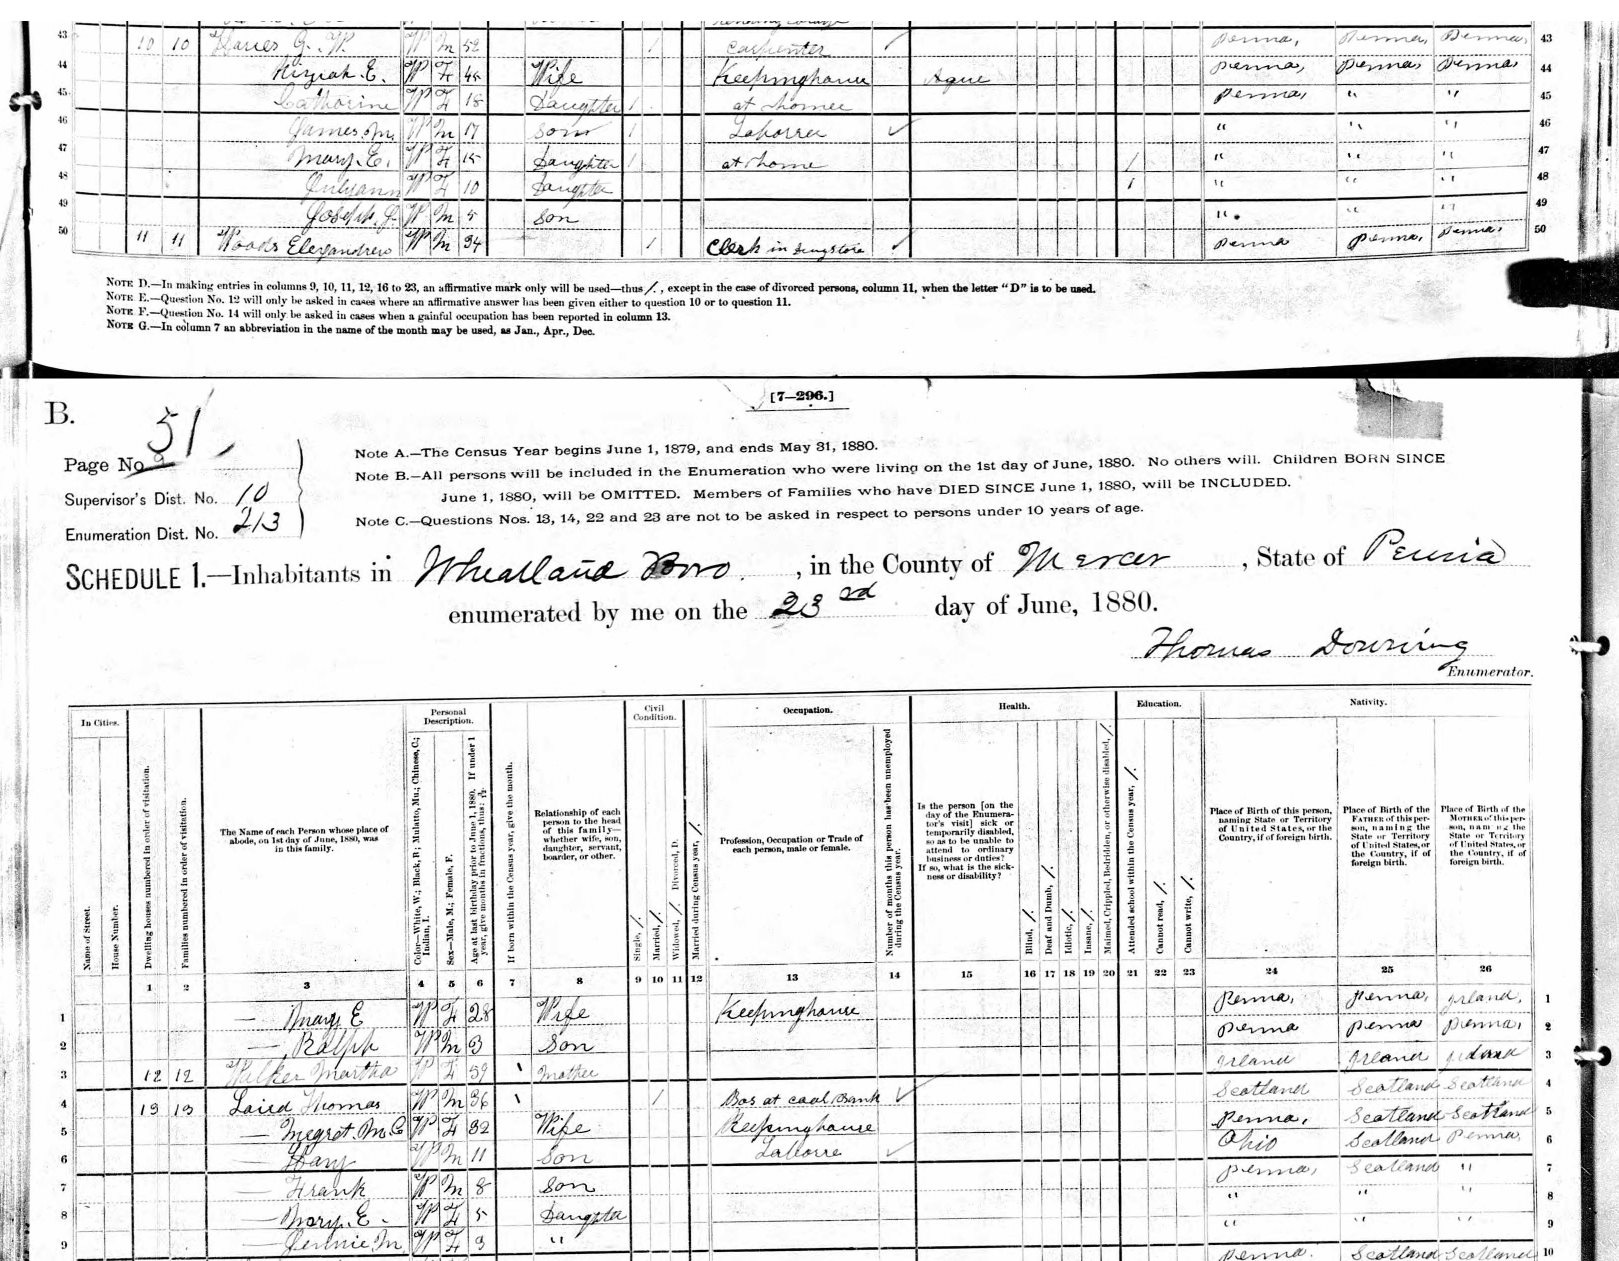 43 10 10 G. W. W M 52 / carpenter Penna, Penna, Penna, 43
44 Kiziah E. W F 45 Wife Keepinghouse Ague Penna, Penna, Penna, 44
45 Catharine W F 18 Daughter / at home Penna, " " 45
46 James M. W M 17 Son / Laborer " " " 46
47 Mary E. W F 15 Daughter / at home / " " " 47
48 W F 10 Daughter / " " " 48
49 Joseph W M 5 Son " " " 49
50 11 11 Woods W M 34 / Clerk in Drugstore Penna Penna, Penna, 50
NOTE D.—In making entries in columns 9, 10, 11, 12, 16 to 23, an affirmative mark only will be used—thus /, except in the case of divorced persons, column 11, when the letter "D" is to be used.
NOTE E.—Question No. 12 will only be asked in cases where an affirmative answer has been given either to question 10 or to question 11.
NOTE F.—Question No. 14 will only be asked in cases when a gainful occupation has been reported in column 13.
NOTE G.—In column 7 an abbreviation in the name of the month may be used, as Jan., Apr., Dec.
[7—296.]
B.
51
Page No.
Supervisor's Dist. No. 10
Enumeration Dist. No. 213
Note A.—The Census Year begins June 1, 1879, and ends May 31, 1880.
Note B.—All persons will be included in the Enumeration who were living on the 1st day of June, 1880. No others will. Children BORN SINCE
June 1, 1880, will be OMITTED. Members of Families who have DIED SINCE June 1, 1880, will be INCLUDED.
Note C.—Questions Nos. 13, 14, 22 and 23 are not to be asked in respect to persons under 10 years of age.
SCHEDULE 1.—Inhabitants in Wheatland Boro, in the County of Mercer, State of Penna
enumerated by me on the 23rd day of June, 1880.
Thomas Downing
Enumerator.
In Cities.
Name of Street.
House Number.
Dwelling houses numbered in order of visitation.
Families numbered in order of visitation.
The Name of each Person whose place of
abode, on 1st day of June, 1880, was
in this family.
Personal
Description.
Color—White, W.; Black, B.; Mulatto, Mu.; Chinese, C.;
Indian, I.
Sex—Male, M.; Female, F.
Age at last birthday prior to June 1, 1880. If under 1
year, give months in fractions, thus:
If born within the Census year, give the month.
Relationship of each
person to the head
of this family—
whether wife, son,
daughter, servant,
boarder, or other.
Civil
Condition.
Single, /.
Married, /.
Widowed, /. Divorced, D.
Married during Census year, /.
Occupation.
Profession, Occupation or Trade of
each person, male or female.
Number of months this person has been unemployed
during the Census year.
Health.
Is the person [on the
day of the Enumera-
tor's visit] sick or
temporarily disabled,
so as to be unable to
attend to ordinary
business or duties?
If so, what is the sick-
ness or disability?
Blind, /.
Deaf and Dumb, /.
Idiotic, /.
Insane, /.
Maimed, Crippled, Bedridden, or otherwise disabled, /.
Education.
Attended school within the Census year, /.
Cannot read, /.
Cannot write, /.
Nativity.
Place of Birth of this person,
naming State or Territory
of United States, or the
Country, if of foreign birth.
Place of Birth of the
FATHER of this per-
son, naming the
State or Territory
of United States, or
the Country, if of
foreign birth.
Place of Birth of the
MOTHER of this per-
son, naming the
State or Territory
of United States, or
the Country, if of
foreign birth.
1 2 3 4 5 6 7 8 9 10 11 12 13 14 15 16 17 18 19 20 21 22 23 24 25 26
1 — Mary E W F 28 Wife Keepinghouse Penna, Penna, Irland, 1
2 — Ralph W M 3 Son Penna Penna Penna, 2
3 12 12 Martha W F 59 Mother Irland Irland Irland 3
4 13 13 Laird Thomas W M 36 / Bos at coal Bank Scotland Scotland Scotland 4
5 — W F 32 Wife Keepinghouse Penna, Scotland Scotland 5
6 — W M 11 Son Ohio Scotland Penna, 6
7 — Frank W M 8 Son Penna, Scotland " 7
8 — Mary E. W F 5 Daughter " " " 8
9 — Jennie M W F 3 " " " " 9
Penna. Scotland Scotland 10